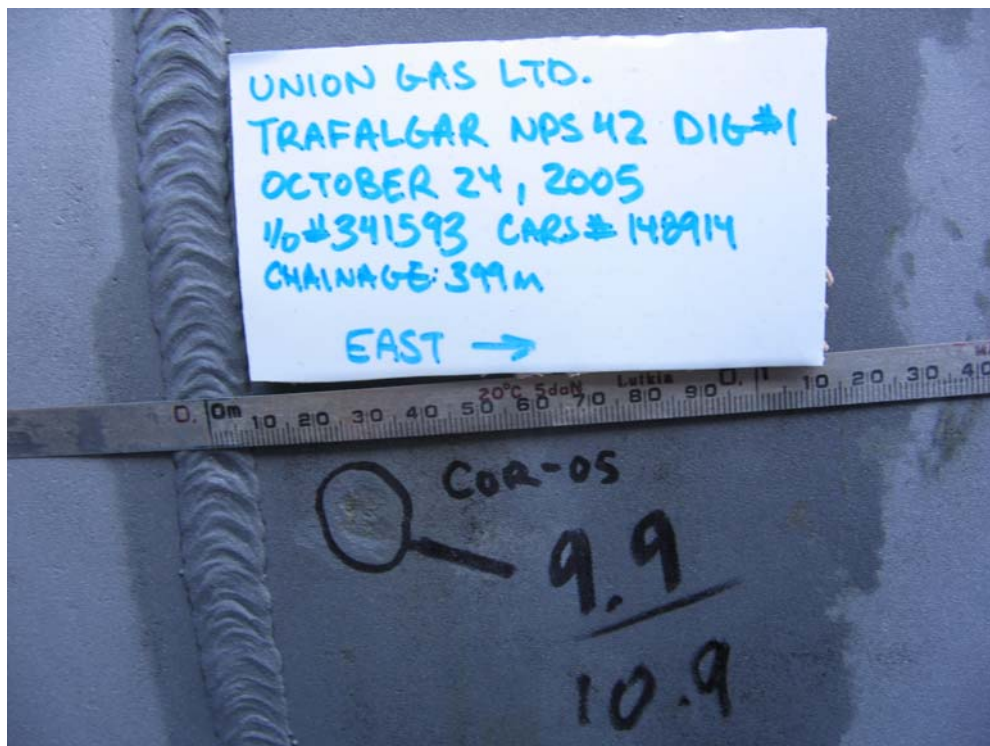 UNION GAS LTD.
TRAFALGAR NPS 42 DIG#1
OCTOBER 24, 2005
I/O#341593 CARS# 148914
CHAINAGE: 399m
EAST →
20°C 5daN Lufkin
0, 0m 10 20 30 40 50 60 70 80 90 0,1 10 20 30 40
COR-05
9.9
10.9